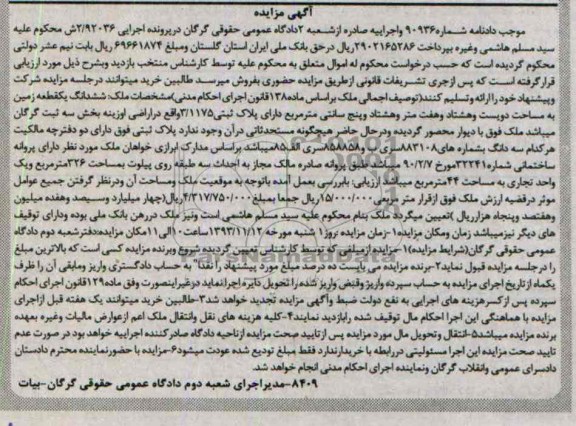 آگهی مزایده
موجب دادنامه شماره۹۰۹۳۶ واجراییه صادره ازشعبه ۲دادگاه عمومی حقوقی گرگان درپرونده اجرایی ۲/۹۲۰۳۶ش محکوم علیه
سید مسلم هاشمی وغیره بپرداخت ۲۹۰۲۱۶۵۲۸۶ریال درحق بانک ملی ایران استان گلستان ومبلغ ۶۹۶۶۱۸۷۴ ریال بابت نیم عشر دولتی
محکوم گردیده است که حسب درخواست محکوم له اموال متعلق به محکوم علیه توسط کارشناس منتخب بازدید وبشرح ذیل مورد ارزیابی
قرارگرفته است که پس ازجری تشریفات قانونی ازطریق مزایده حضوری بفروش میرسد طالبین خرید میتوانند درجلسه مزایده شرکت
وپیشنهاد خود را ارائه وتسلیم کنند(توصیف اجمالی ملک براساس ماده۱۳۸قانون اجرای احکام مدنی)مشخصات ملک:ششدانگ یکقطعه زمین
به مساحت دویست وهشتاد وهفت متر وهشتاد وپنج سانتی مترمربع دارای پلاک ثبتی۳/۱۱۷۵واقع دراراضی اوزینه بخش سه ثبت گرگان
میباشد ملک فوق با دیوار محصور گردیده ودرحال حاضر هیچگونه مستحدثاتی درآن وجود ندارد پلاک ثبتی فوق دارای دو دفترچه مالکیت
هرکدام سه دانگ بشماره های۸۸۳۱۰۸سری ب و۸۵۸۸۵۸سری الف۸۵میباشد براساس مدارک ابرازی خواهان ملک مورد نظر دارای پروانه
ساختمانی شماره۳۲۲۴۱مورخ ۹۰/۲/۷ میباشد طبق پروانه صادره مالک مجاز به احداث سه طبقه روی پیلوت بمساحت ۳۲۶مترمربع ویک
واحد تجاری به مساحت ۴۴مترمربع میباشد ارزیابی: بابررسی بعمل آمده باتوجه به موقعیت ملک ومساحت آن ودرنظر گرفتن جمیع عوامل
موثر درقضیه ارزش ملک فوق ازقرار متر مربعی۱۵/۰۰۰/۰۰۰ریال جمعا بمبلغ۴/۳۱۷/۷۵۰/۰۰۰ریال(چهار میلیارد وسیصد وهفده میلیون
وهفتصد وپنجاه هزارریال )تعیین میگردد ملک بنام محکوم علیه سید مسلم هاشمی است ونیز ملک دررهن بانک ملی بوده ودارای توقیف
های دیگر نیزمیباشد زمان ومکان مزایده۱-زمان مزایده روز۱ شنبه مورخه ۱۳۹۳/۱۱/۱۲ ساعت۱۰الی۱۱مکان مزایده:دفترشعبه دوم دادگاه
عمومی حقوقی گرگان(شرایط مزایده)۱-مزایده ازمبلغی که توسط کارشناس تعیین گردیده شروع وبرنده مزایده کسی است که بالاترین مبلغ
را درجلسه مزایده قبول نماید۲-برنده مزایده می بایست ده درصد مبلغ مورد پیشنهاد را نقدا" به حساب دادگستری واریز ومابقی آن را ظرف
یکماه ازتاریخ اجرای مزایده به حساب سپرده واریز وقبض واریز شده را تحویل دایره اجرا نماید درغیر اینصورت وفق ماده۱۲۹قانون اجرای احکام
سپرده پس ازکسرهزینه های اجرایی به نفع دولت ضبط وآگهی مزایده تجدید خواهد شد۳-طالبین خرید میتوانند یک هفته قبل ازاجرای
مزایده با هماهنگی این اجرا احکام مال توقیف شده رابازدید نمایند۴-کلیه هزینه های نقل وانتقال ملک اعم ازعوارض مالیات وغیره بعهده
برنده مزایده میباشد۵-انتقال وتحویل مال مورد مزایده پس ازتایید صحت مزایده ازناحیه دادگاه صادرکننده اجراییه خواهد بود در صورت عدم
تایید صحت مزایده این اجرا مسئولیتی دررابطه با خریدارندارد فقط مبلغ تودیع شده عودت میشود۶-مزایده با حضورنماینده محترم دادستان
دادسرای عمومی وانقلاب گرگان ونماینده اجرای احکام مدنی انجام خواهد شد.
۸۴۰۹-مدیراجرای شعبه دوم دادگاه عمومی حقوقی گرگان-بیات